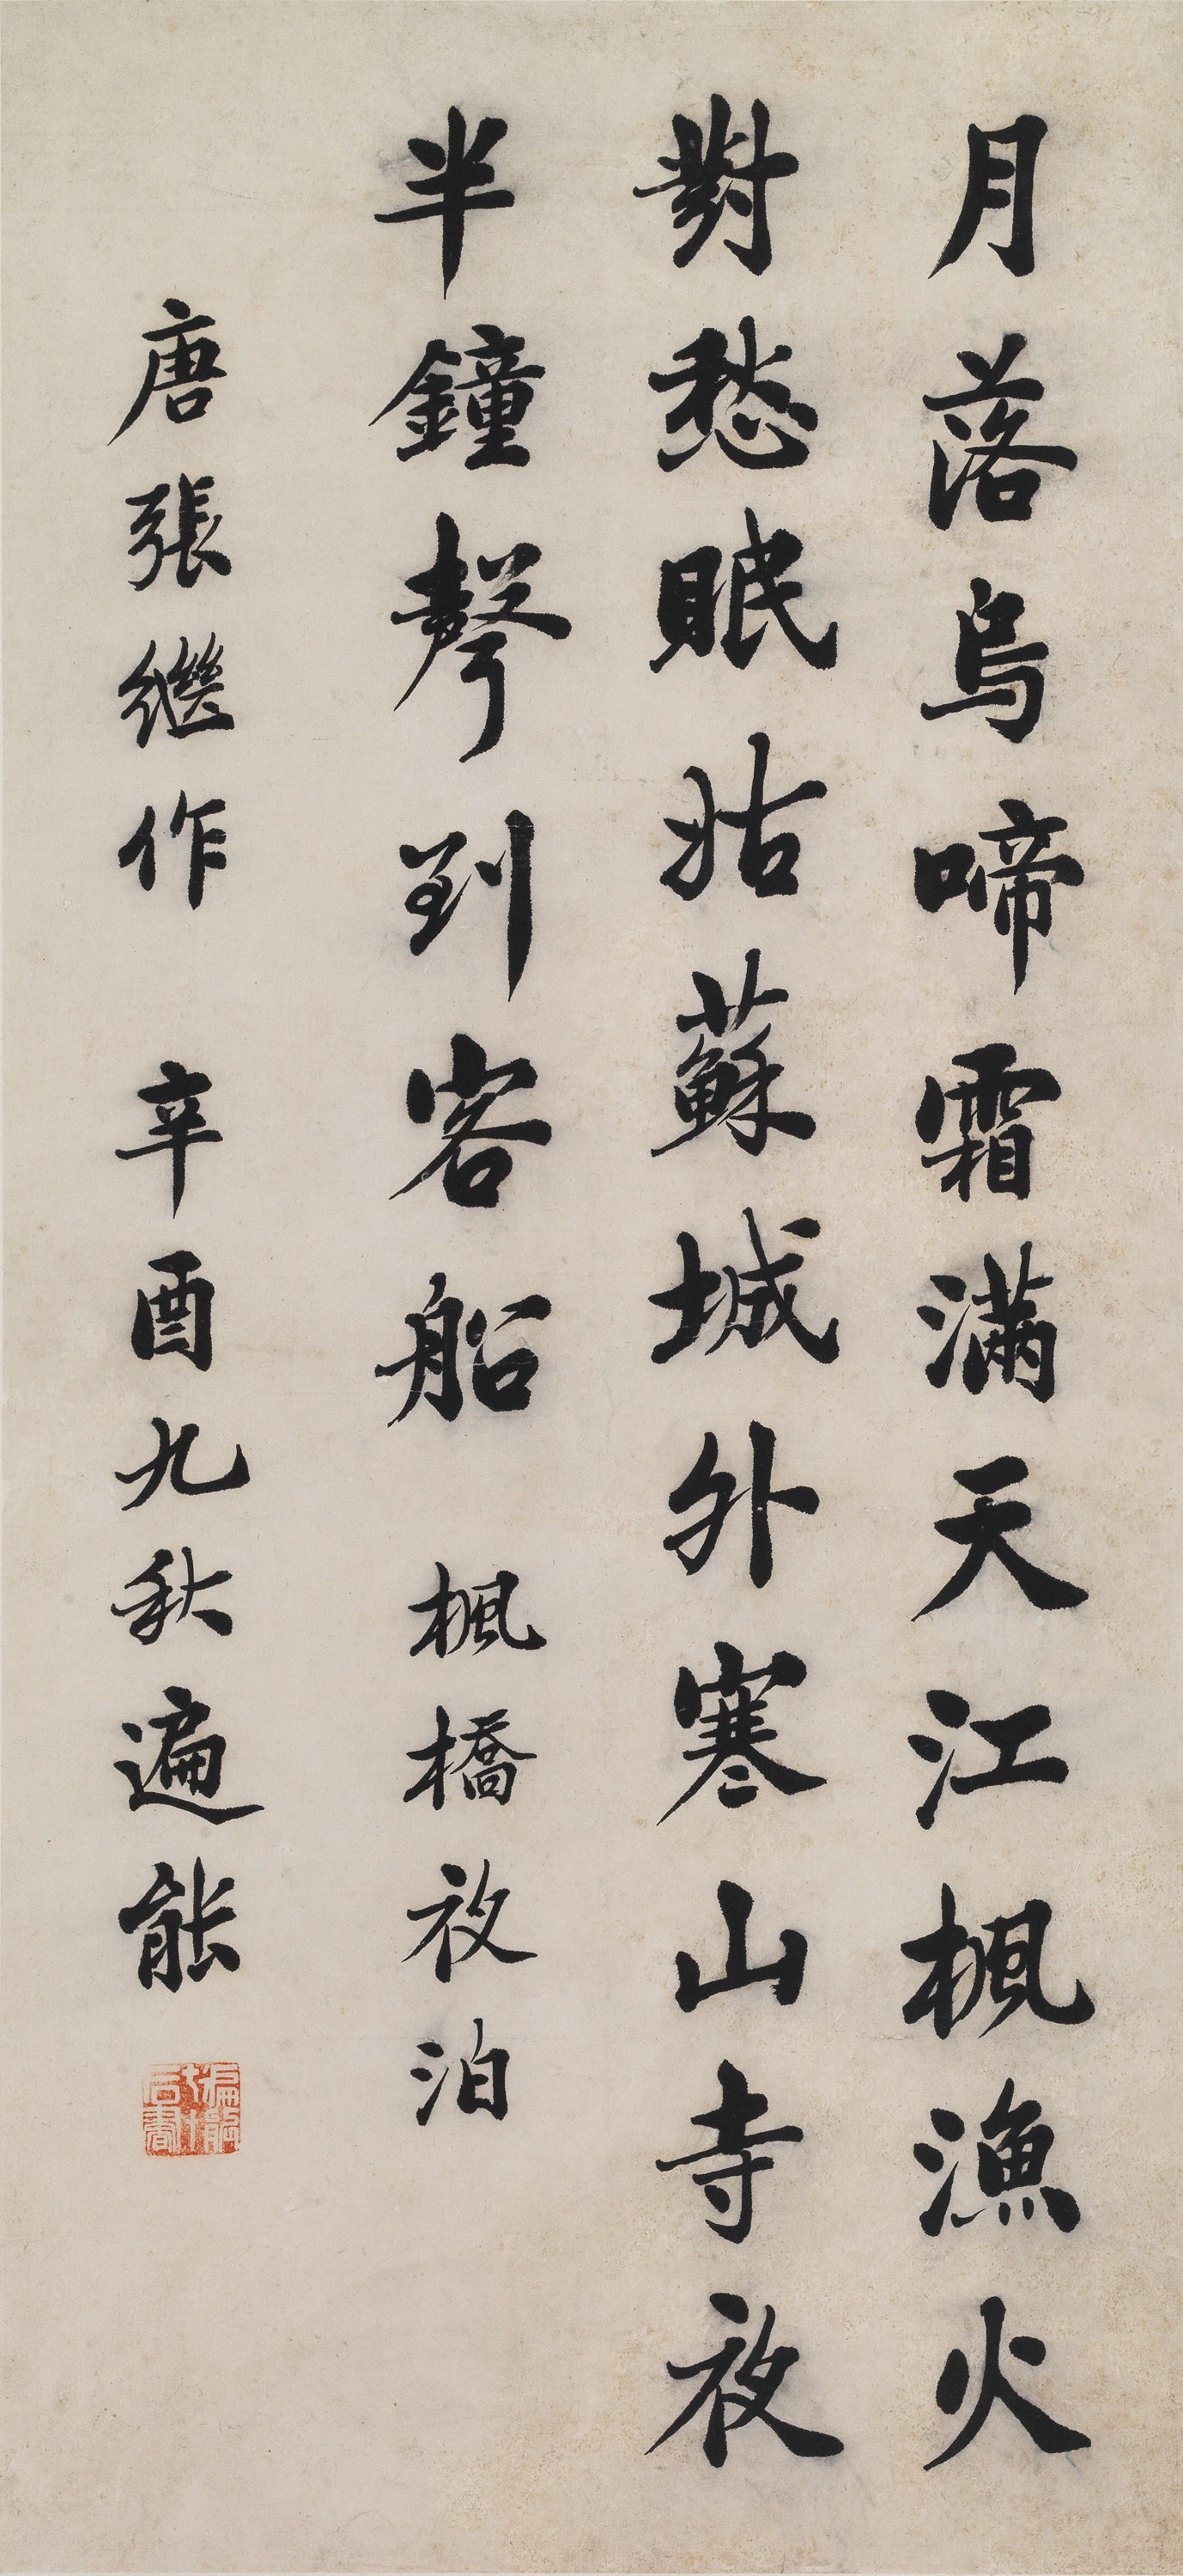 月落烏啼霜滿天江楓漁火
對愁眠姑蘇城外寒山寺夜
半鐘聲到客船 楓橋夜泊
唐張繼作 辛酉九秋遍能